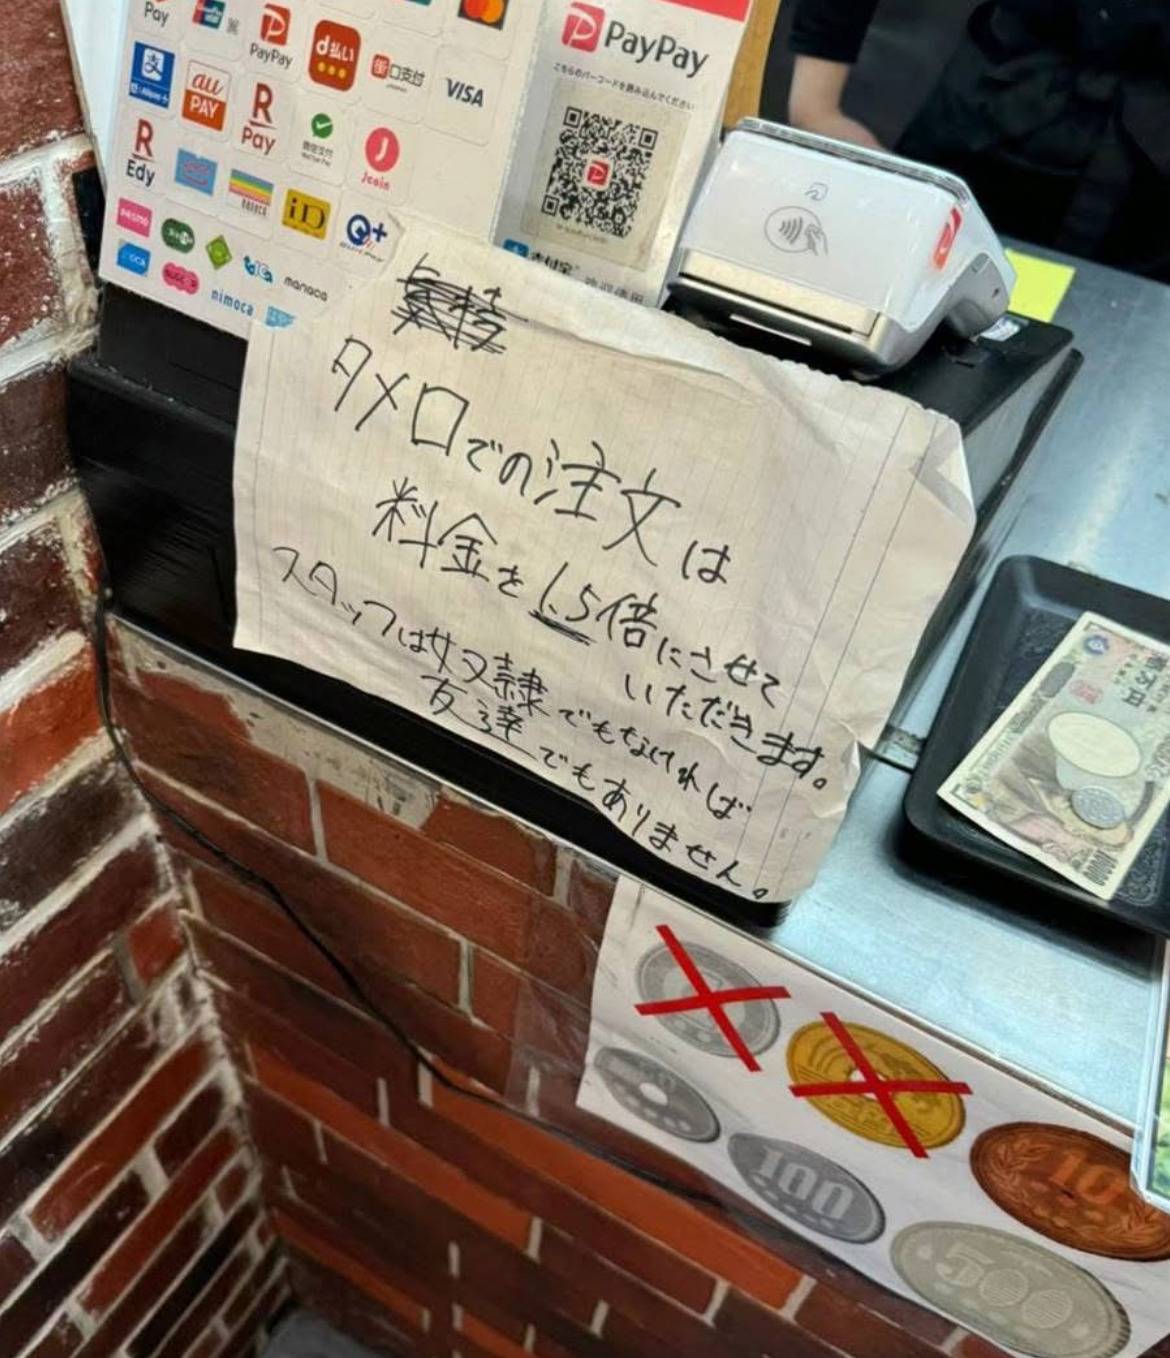 Pay
PayPay
d払い
VISA
PayPay
こちらのバーコードを読み込んでください
支
au
PAY
R
Pay
微信支付
J
Jcoin
R
Edy
nanaco
iD
manaca
nimoca
支付宝
タメ口での注文は
料金を1.5倍にさせて
いただきます。
スタッフは奴隷でもなければ
友達でもありません。
壱万円
10000
10
100
500